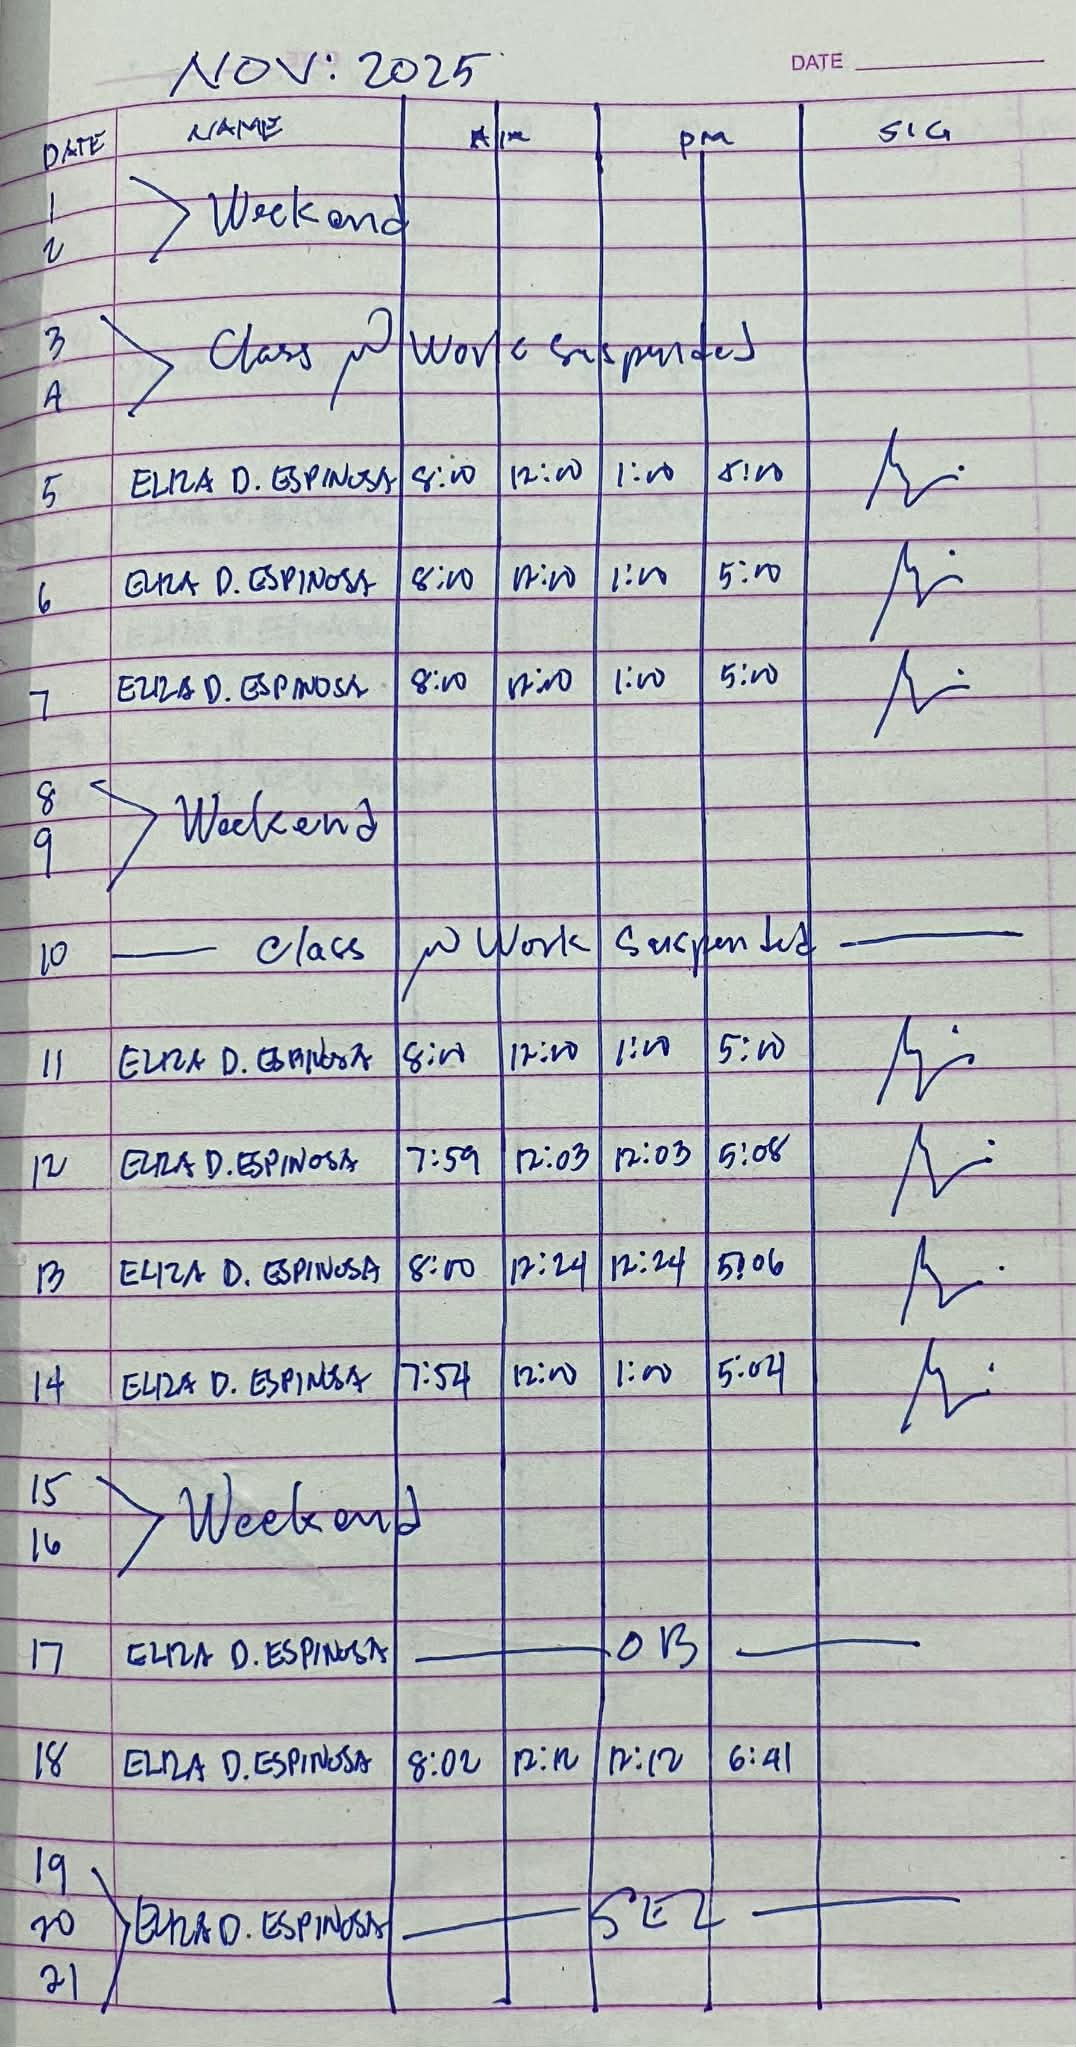 NOV: 2025
DATE
DATE NAME AM PM SIG
1
2
Weekend
3
4
Class Work Suspended
5 ELIZA D. ESPINOSA 8:00 12:00 1:00 5:00
6 ELIZA D. ESPINOSA 8:00 12:00 1:00 5:00
7 ELIZA D. ESPINOSA 8:00 12:00 1:00 5:00
8
9
Weekend
10 Class Work Suspended
11 ELIZA D. ESPINOSA 8:00 12:00 1:00 5:00
12 ELIZA D. ESPINOSA 7:59 12:03 12:03 5:08
13 ELIZA D. ESPINOSA 8:00 12:24 12:24 5:06
14 ELIZA D. ESPINOSA 7:54 12:00 1:00 5:04
15
16
Weekend
17 ELIZA D. ESPINOSA OB
18 ELIZA D. ESPINOSA 8:02 12:12 12:12 6:41
19
20 ELIZA D. ESPINOSA
21